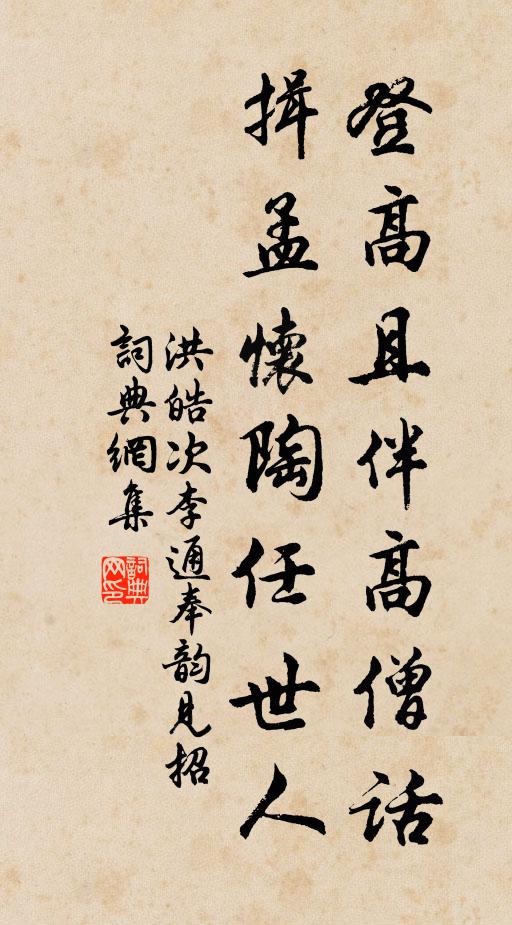 登高且伴高僧話
揖孟懷陶任世人
洪皓次李通奉韵見招
詞典網集
詞典网印